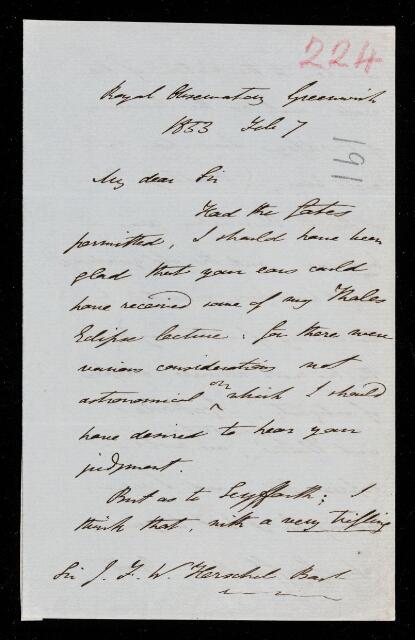 224
Royal Observatory Greenwich
1853 Feb 7
191
My dear Sir
Had the fates
permitted, I should have been
glad that your ears could
have received some of my Thales
Eclipse lecture: for there were
various considerations not
astronomical on which I should
have desired to hear your
judgment.
But as to Seyffarth; I
think that, with a very trifling
Sir J. F. W. Herschel Bart